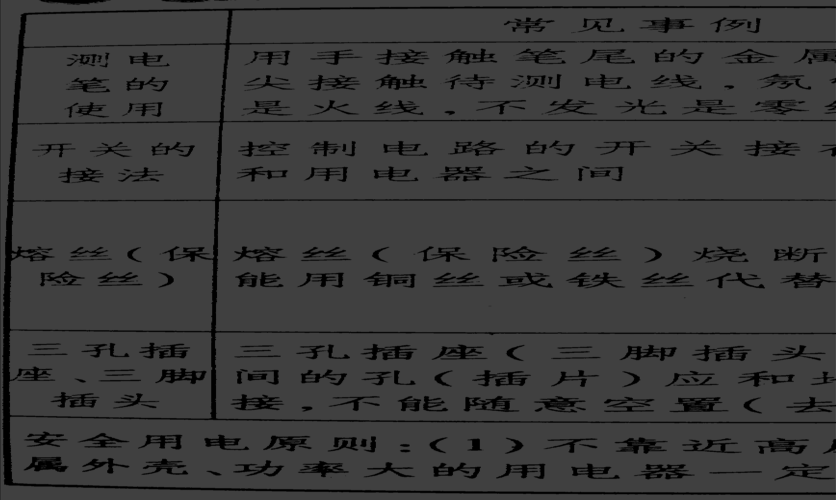 常见事例
测电
笔的
使用
用手接触笔尾的金属
尖接触待测电线，氖
是火线，不发光是零
开关的
接法
控制电路的开关接在
和用电器之间
熔丝(保
险丝)
熔丝(保险丝)烧断
能用铜丝或铁丝代替
三孔插
座、三脚
插头
三孔插座(三脚插头
间的孔(插片)应和地
接,不能随意空置(去
安全用电原则:(1)不靠近高
属外壳、功率大的用电器一定